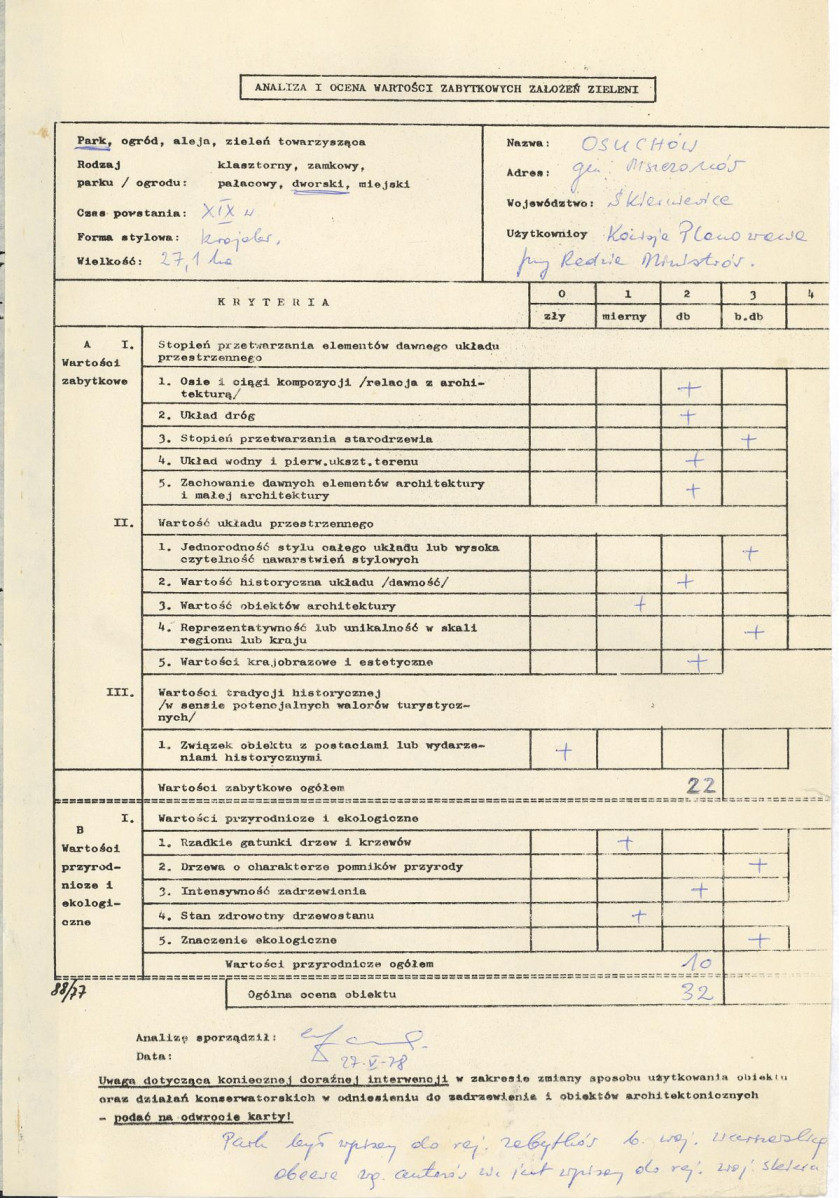 ANALIZA I OCENA WARTOŚCI ZABYTKOWYCH ZAŁOŻEŃ ZIELENI
Park, ogród, aleja, zieleń towarzysząca
Rodzaj klasztorny, zamkowy,
parku / ogrodu: pałacowy, dworski, miejski
Czas powstania: XIX w
Forma stylowa: krajobr.
Wielkość: 27,1 ha
Nazwa: OSUCHÓW
Adres: gm. Mszczonów
Województwo: Skierniewice
Użytkownicy Komisja Planowania
przy Radzie Ministrów.
KRYTERIA 0 1 2 3 4
zły mierny db b.db
A I. Stopień przetwarzania elementów dawnego układu
przestrzennego
Wartości
zabytkowe
1. Osie i ciągi kompozycji /relacja z archi-
tekturą/ +
2. Układ dróg +
3. Stopień przetwarzania starodrzewia +
4. Układ wodny i pierw.ukszt.terenu +
5. Zachowanie dawnych elementów architektury
i małej architektury +
II. Wartość układu przestrzennego
1. Jednorodność stylu całego układu lub wysoka
czytelność nawarstwień stylowych +
2. Wartość historyczna układu /dawność/ +
3. Wartość obiektów architektury +
4. Reprezentatywność lub unikalność w skali
regionu lub kraju +
5. Wartości krajobrazowe i estetyczne +
III. Wartości tradycji historycznej
/w sensie potencjalnych walorów turystycz-
nych/
1. Związek obiektu z postaciami lub wydarze-
niami historycznymi +
Wartości zabytkowe ogółem 22
B I. Wartości przyrodnicze i ekologiczne
Wartości
przyrod-
nicze i
ekologi-
czne
1. Rzadkie gatunki drzew i krzewów +
2. Drzewa o charakterze pomników przyrody +
3. Intensywność zadrzewienia +
4. Stan zdrowotny drzewostanu +
5. Znaczenie ekologiczne +
Wartości przyrodnicze ogółem 10
88/77 Ogólna ocena obiektu 32
Analizę sporządził:
Data: 27-V-78
Uwaga dotycząca koniecznej doraźnej interwencji w zakresie zmiany sposobu użytkowania obiektu
oraz działań konserwatorskich w odniesieniu do zadrzewienia i obiektów architektonicznych
- podać na odwrocie karty!
Park był wpisany do rej. zabytków b. woj. warszawskiego
obecnie wg. autorów nie jest wpisany do rej. woj. skiern